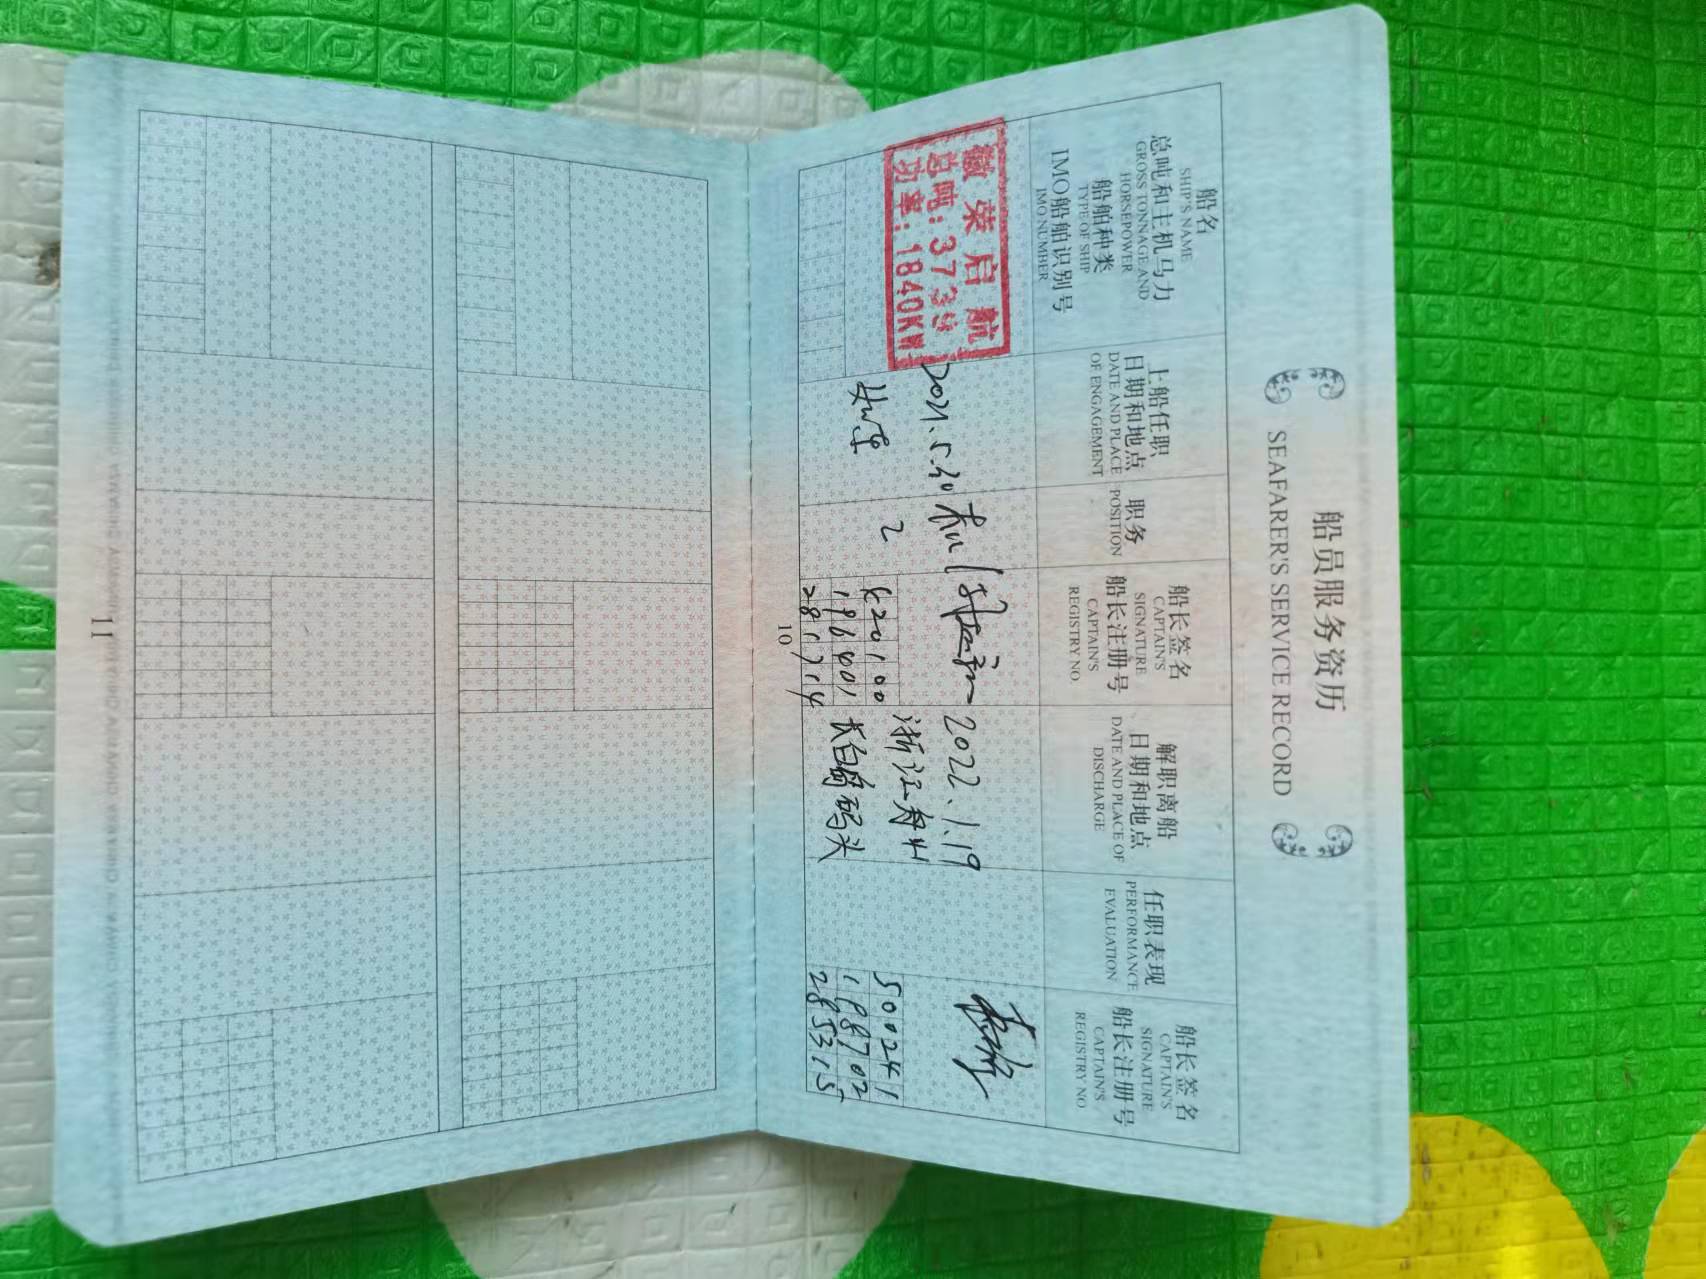 船员服务资历
SEAFARER'S SERVICE RECORD
船名
SHIP'S NAME
总吨和主机马力
GROSS TONNAGE AND
HORSEPOWER
船舶种类
TYPE OF SHIP
IMO船舶识别号
IMO NUMBER
上船任职
日期和地点
DATE AND PLACE
OF ENGAGEMENT
职务
POSITION
船长签名
CAPTAIN'S
SIGNATURE
船长注册号
CAPTAIN'S
REGISTRY NO.
解职离船
日期和地点
DATE AND PLACE OF
DISCHARGE
任职表现
PERFORMANCE
EVALUATION
船长签名
CAPTAIN'S
SIGNATURE
船长注册号
CAPTAIN'S
REGISTRY NO
徽荣启航
总吨:3739
功率:1840KW
2021.5.30
620100
196401
281714
2022.1.19
浙江舟山
长白岛码头
500241
198702
285315
10
11